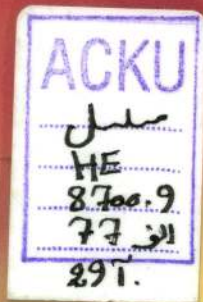 ACKU
مسلسل
HE
8700.9
الف 77
29T.